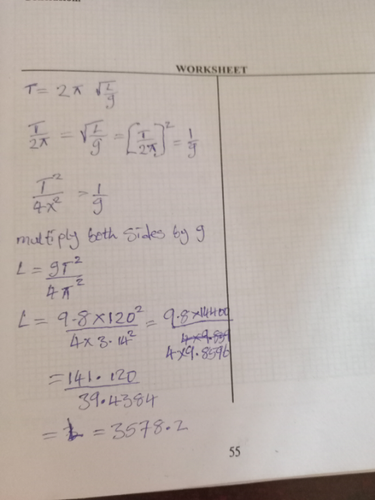 WORKSHEET
T = 2π √L/g
T/2π = √L/g = [T/2π]² = 1/g
T²/4x² = 1/g
multiply both sides by g
L = gT²/4π²
L = 9.8×120²/4×3.14² = 9.8×14400/4×9.8596
= 141.120/39.4384
= L = 3578.2
55